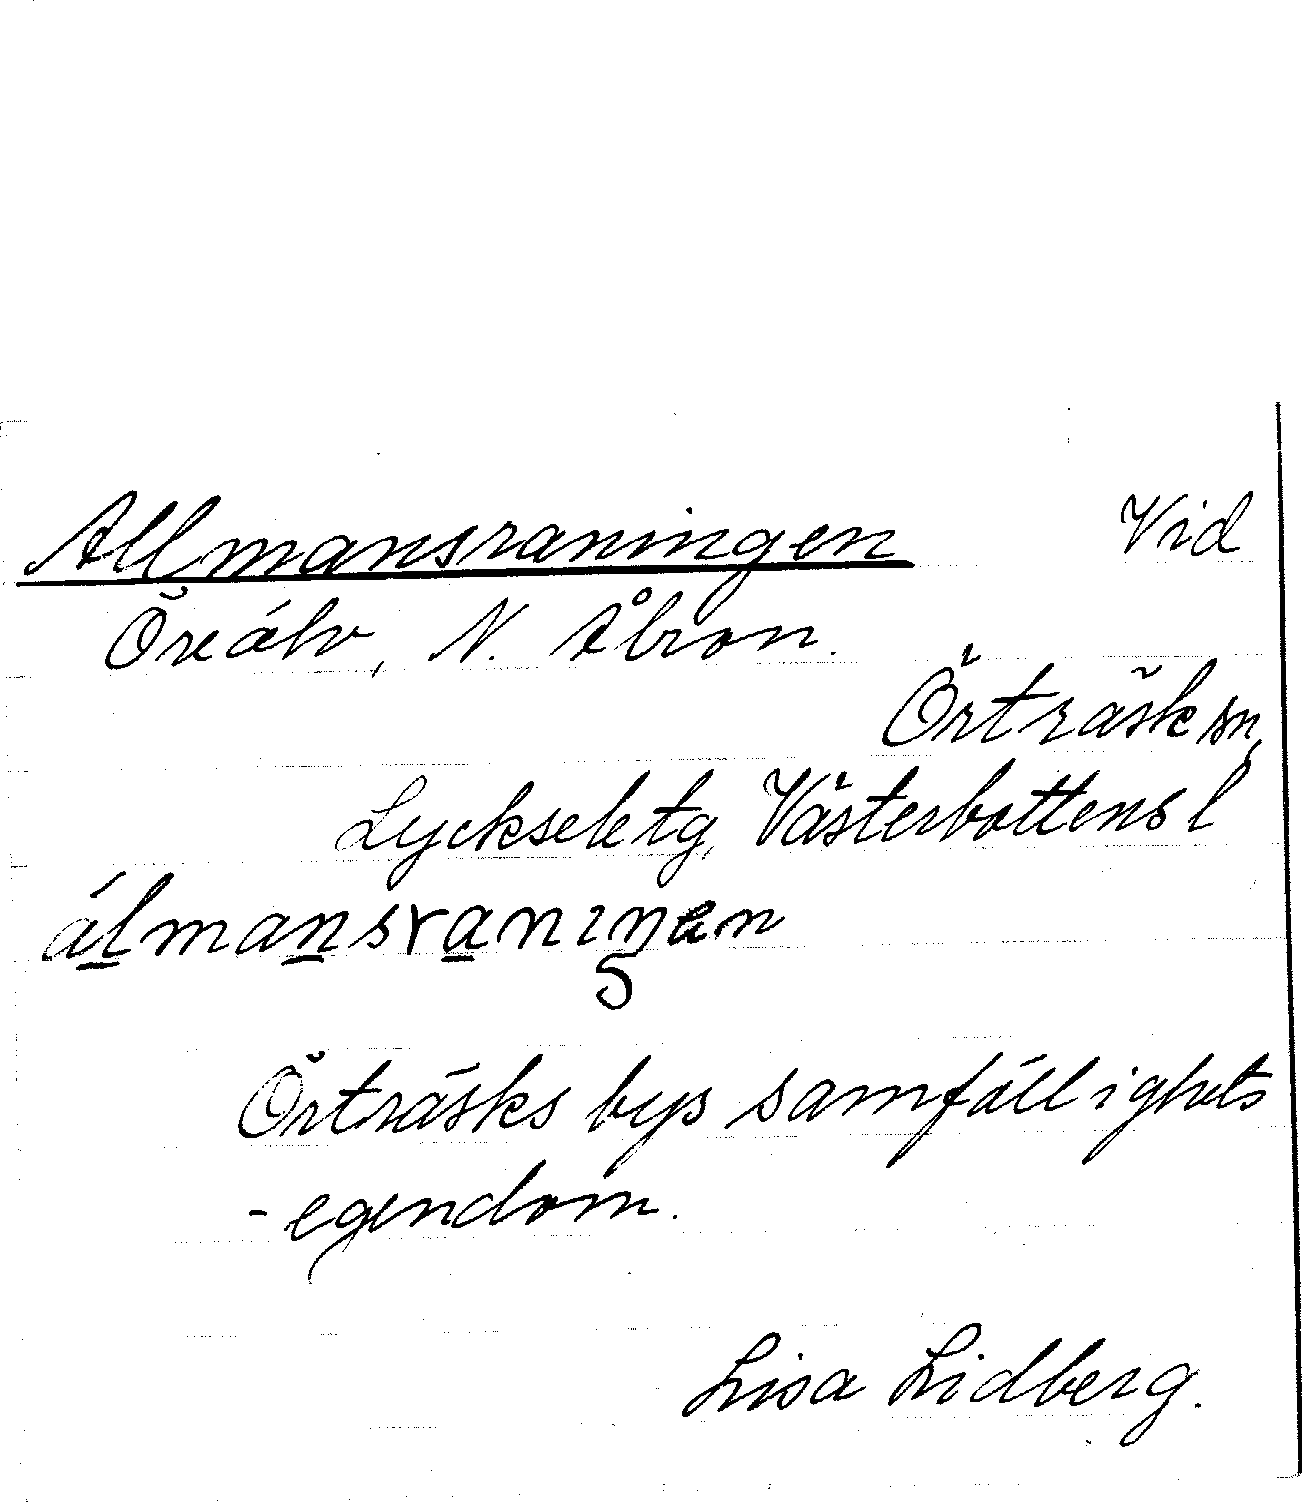 Allmansraningen Vid
Öreälv, N. Åbron.
Örträsk sn,
Lycksele tg, Västerbottens l
álmansranıŋen
Örträsks bys samfällighets
-egendom.
Lisa Lidberg.